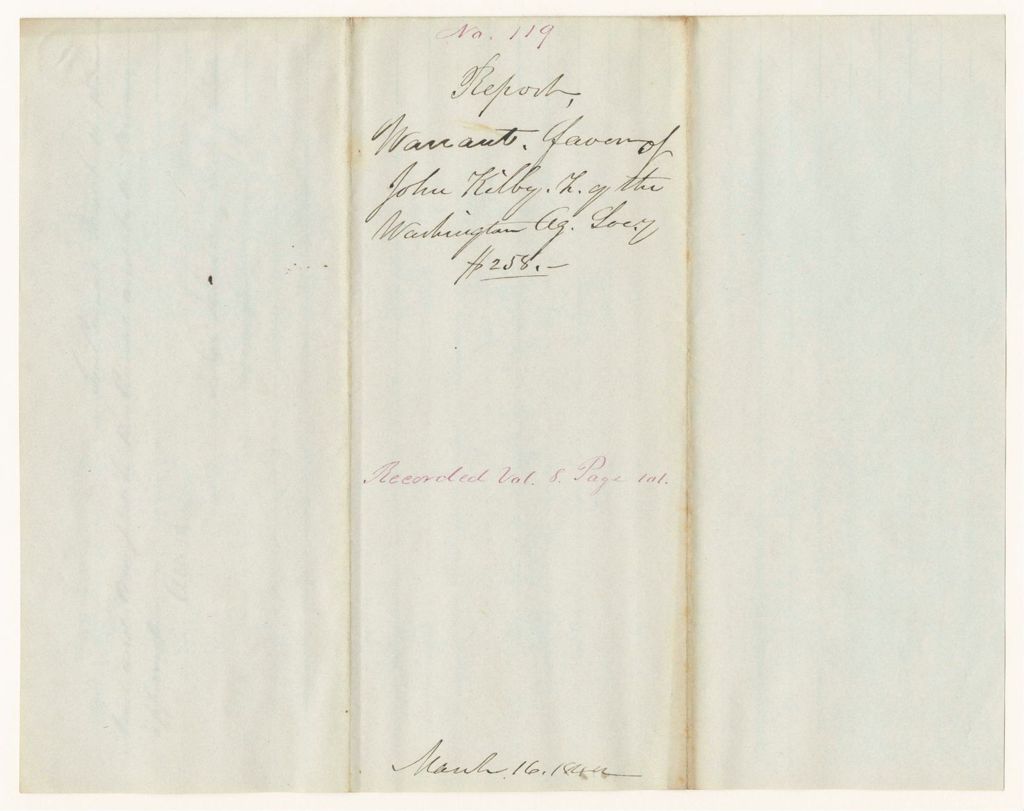 No. 119
Report,
Warrant. favor of
John Kilby. T. of the
Washington Ag. Socy
$258.—
Recorded Vol. 8. Page 101.
March 16. 1844